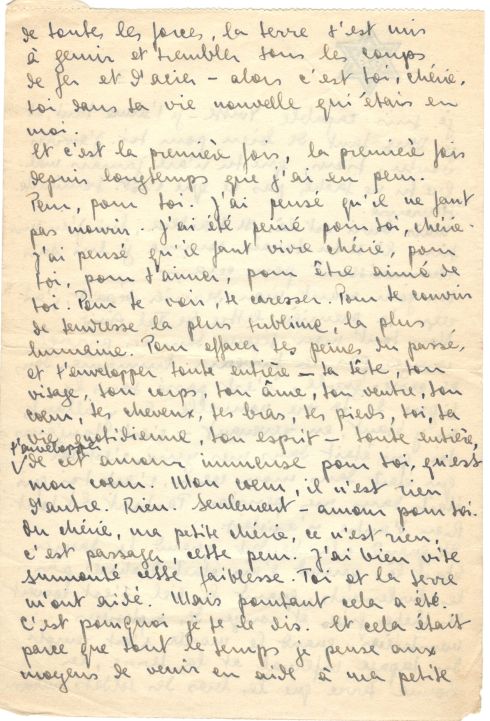 de toutes les forces, la terre s'est mis
à gémir et trembler sous les coups
de fer et d'acier – alors c'est toi, chérie,
toi dans ta vie nouvelle qui étais en
moi.
Et c'est la première fois, la première fois
depuis longtemps que j'ai eu peur.
Peur, pour toi. J'ai pensé qu'il ne faut
pas mourir. J'ai été peiné pour toi, chérie.
J'ai pensé qu'il faut vivre chérie, pour
toi, pour t'aimer, pour être aimé de
toi. Pour te voir, te caresser. Pour te couvrir
de tendresse la plus sublime, la plus
humaine. Pour effacer tes peines du passé,
et t'envelopper toute entière – ta tête, ton
visage, ton corps, ton âme, ton ventre, ton
cœur, tes cheveux, tes bras, tes pieds, toi, ta
vie quotidienne, ton esprit – toute entière,
t'envelopper
de cet amour immense pour toi, qu'est
mon cœur. Mon cœur, il n'est rien
d'autre. Rien. Seulement – amour pour toi.
Du chérie, ma petite chérie, ce n'est rien,
c'est passager, cette peur. J'ai bien vite
surmonté cette faiblesse. Toi et la terre
m'ont aidé. Mais pourtant cela a été.
C'est pourquoi je te le dis. Et cela était
parce que tout le temps je pense aux
moyens de venir en aide à ma petite